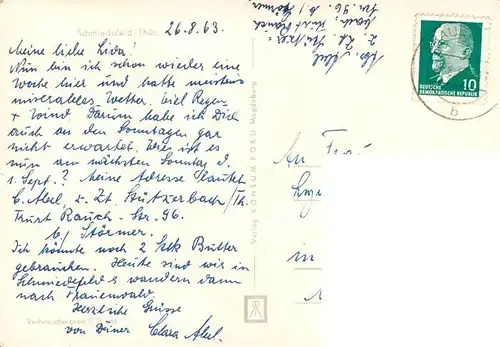 Schmiedefeld / Thür.
26.8.63.
Meine liebe Lisa!
Nun bin ich schon wieder eine
Woche hier und hatte meistens
miserables Wetter. Viel Regen
+ Wind. Darum habe ich Dich
auch an den Sonntagen gar
nicht erwartet. Wie ist es
nun am nächsten Sonntag d.
1. Sept.? Meine Adresse lautet
C. Abel, z. Zt. Stützerbach/Th.
Kurt Rauch-Str. 96.
b/ Störmer.
Ich könnte noch 2 Stk Butter
gebrauchen. Heute sind wir in
Schmiedefeld & wandern dann
nach Frauenwald.
Herzliche Grüsse
von Deiner Clara Abel.
Abs. Abel
z. Zt. Stützer-
bach Kurt Rauch
Str. 96. b/
Störmer
DEUTSCHE
DEMOKRATISCHE REPUBLIK
10
b
An
in
Verlag KONSUM FOKU Magdeburg
Verbraucherpreis